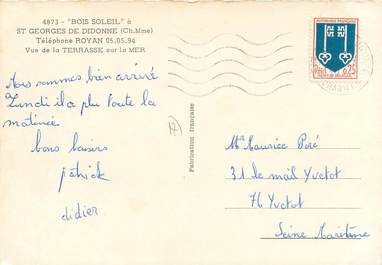 4873 - "BOIS SOLEIL" à
ST GEORGES DE DIDONNE (Ch.Mme)
Téléphone ROYAN 05.05.94
Vue de la TERRASSE sur la MER
Nous sommes bien arrivé
Lundi il a plu toute la
matinée
bons baisers
patrick
didier
17
Fabrication française
REPUBLIQUE FRANÇAISE
0,25
Mr Maurice Poré
31 le mail Yvetot
76 Yvetot
Seine Maritime